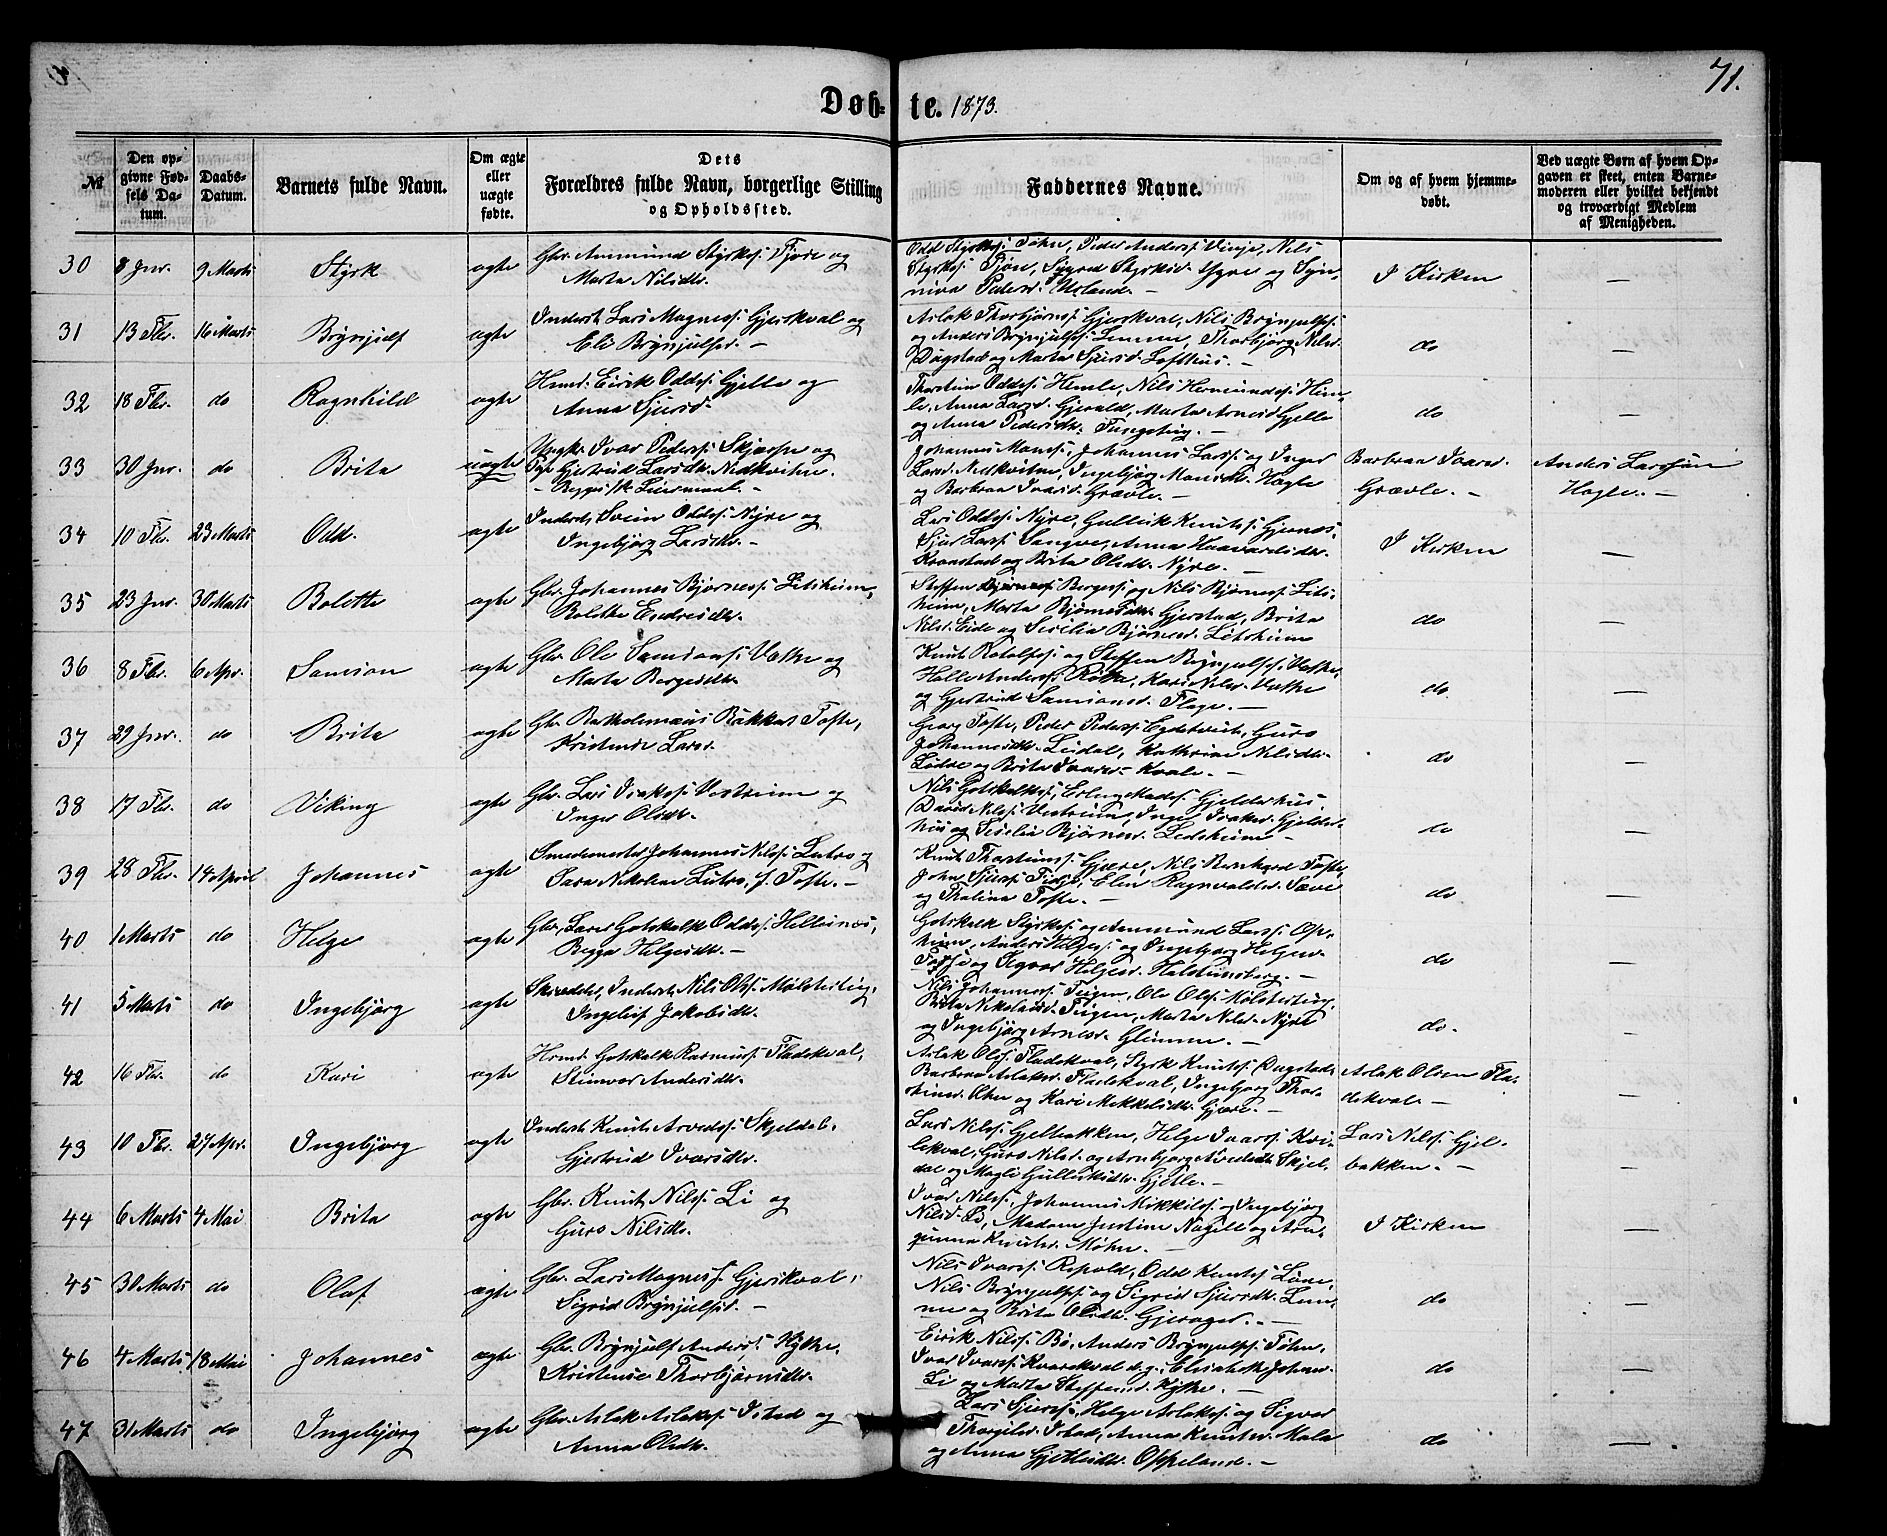 71.
Døbte. 1873.
№
Den opgivne Fødsels Datum.
Daabs-Datum.
Barnets fulde Navn.
Om ægte eller uægte fødte.
Dets Forældres fulde Navn, borgerlige Stilling og Opholdssted.
Faddernes Navne.
Om og af hvem hjemmedøbt.
Ved uægte Børn af hvem Opgaven er skeet, enten Barnemoderen eller hvilket bekjendt og troværdigt Medlem af Menigheden.
30 8 Jnr. 9 Marts Styrk ægte
Gbr. Ammund Styrks. Tjøre og
Marta Nilsdtr.
Odd Styrks. Tøhn, Peder Anders. Vinje, Nils
Styrks. Tjøn, Sigrid Styrksd. Ygre og Syn-
niva Pedersd. Urland. —
I Kirken —
31 13 Fbr. 16 Marts Brynjulf ægte
Inderst Lars Magness. Gjerskval og
Eli Brynjulfsd. —
Aslak Thorbjørns. Gjerskval, Nils Brynjulfs.
og Anders Brynjulfs. Lemme, Thorbjørg Nilsd.
Dugstad og Marta Sjursd. Lofthus. —
do —
32 18 Fbr. do Ragnhild ægte
Hmd. Eirik Odds. Gjelle og
Anna Sjursd.
Thorstein Odds. Hemle, Nils Hermunds. Him-
le, Anna Larsd. Gjerald, Marta Arnesd. Gjelle
og Anna Pedersdtr. Tungeteig. —
do —
33 30 Jnr. do Brita uægte
Ungk. Ivar Peders. Skjerpe og
Pige Gjertrud Larsdtr. Nedkvitne.
— Begges 1ste Leiermaal. —
Johannes Mons., Johannes Larss. og Inger
Larsd. Nedkvitne, Ingebjørg Monsdtr. Hagle
og Barbraa Ivarsd. Grævle. —
Barbraa Ivarsd.
Grævle. —
Anders Larssøn
Hagle. —
34 10 Fbr. 23 Marts Odd. ægte
Inderst Svein Odds. Nyre og
Ingebjørg Larsdtr. —
Lars Odds. Nyre, Gullik Knuts. Gjernes,
Sjur Larss. Sangve, Anna Haavardsdtr.
Kronstad og Brita Olsdtr. Nyre. —
I Kirken —
35 23 Jnr. 30 Marts Bolette ægte
Gbr. Johannes Bjørness. Litsheim,
Bolette Endresdtr.
Steffen Bergess. og Nils Bjørness. Lits-
heim, Marta Gjerstad, Brita
Nilsd. Eide og Sesilia Bjørnesd. Litsheim
do —
36 8 Fbr. 6 Apr. Samson ægte
Gbr. Ole Samsons. Vethe og
Marta Bergesdtr.
Knut Rotolfs. og Steffen Brynjulfs. Vethe,
Halle Anders. Røthe, Kari Nilsd. Vethe
og Gjertrud Samsonsd. Flage. —
do —
37 29 Jnr. do Brita ægte
Gbr. Bartholemæus Bakkas Tofte,
Kristense Larsd.
Georg Tofte, Peder Peders. Egdetveit, Guro
Johannesdtr. Leidal, Kathrine Nilsdtr.
Lødve og Brita Ivarsd. Kvale. —
do —
38 17 Fbr. do Viking ægte
Gbr. Lars Isaks. Vestreim og
Inger Olsdtr.
Nils Gotskalks., Erling Mads. Gjelderhus,
David Nilss. Vestreim, Inger Isaksd. Gjelder-
hus og Sesilia Bjørnesd. Ledsheim —
do —
39 28 Fbr. 14 April Johannes ægte
Smedemester Johannes Nilss. Lutro og
Sara Nikoline Lutro, f. Tofte. —
Knut Thorsteins. Gjære, Nils Bernhard Tofte,
John Sjurs. Finge, Elin Ragnvaldsd. Sæve
og Thaline Tofte. —
do —
40 1 Marts do Helge ægte
Gbr. Lars Gotskalk Odds. Hellesnes,
Begga Helgesdtr. —
Gotskalk Styrks. og Ammund Larss. Op-
heim, Anders Helges. og Ingebjørg Helgesd.
Tesje og Sigvor Helgesd. Halsteinsberg. —
do —
41 5 Marts do Ingebjørg ægte
Skrædder, Inderst Nils Ols. Mølsterteig,
Ingeleif Jakobsdtr.
Nils Johanness. Teigen, Ole Ols. Mølsterteig,
Brita Nikolaisd. Teigen, Marta Nilsd. Nyre
og Ingebjørg Arnesd. Glimme. —
do. —
42 16 Fbr. do Kari ægte
Hmd. Gotskalk Rasmuss. Fladekval,
Steinvor Andersdtr.
Aslak Ols. Fladekval, Styrk Knuts. Dugstad,
Barbraa Aslaksd. Fladekval, Ingebjørg Thor-
steinsd. og Kari Mikkelsdtr. Gjære. —
Aslak Olsen Fla-
dekval —
43 10 Fbr. 27 Apr. Ingebjørg ægte
Inderst Knut Arveds. Skjeldal.
Gjertrud Ivarsdtr.
Lars Nilss. Gjelbakken, Helge Ivars. Kvi-
lekval, Guro Nilsd. og Arnbjørg Skjel-
dal og Magli Gulleiksdtr. Gjelle. —
Lars Nilss. Gjel-
bakken. — —
44 6 Marts 4 Mai Brita ægte
Gbr. Knut Nilss. Li og
Guro Nilsdtr.
Ivar Nilss., Johannes Mikkels. og Ingebjørg
Nilsd. Li, Madam Justine Nagell og Arn-
gunna Knutsd. Møhn. —
I Kirken —
45 30 Marts do Olaf ægte
Gbr. Lars Magness. Gjerskval,
Sigrid Brynjulfsd. —
Nils Ivars. Repold, Odd Knuts. Løne,
Nils Brynjulfs. og Sigrid Sjursdtr. Lem-
me og Brita Olsdtr. Gjerager. —
do —
46 4 Marts 18 Mai Johannes ægte
Gbr. Brynjulf Anders. Hylhe,
Kristense Thorbjørnsdtr.
Eirik Nilss. Bø, Anders Brynjulfs. Tøhn,
Ivar Ivars. Kvarekval d.y., Elisabeth Johnsd.
Li og Marta Steffensd. Hylhe. —
do —
47 31 Marts do Ingebjørg ægte
Gbr. Aslak Aslaks. Istad og
Anna Olsdtr.
Lars Sjurss., Helge Aslaks. og Sigvor
Thorgilsd. Istad, Anna Knutsd. Mala
og Anna Gjetleisdtr. Oppeland. —
do —